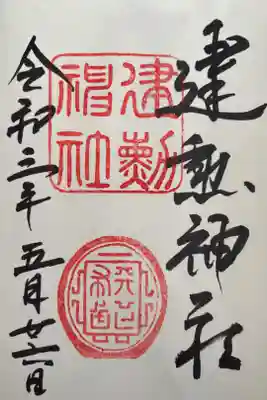 建勲神社
建勲
神社
令和三年五月廿六日